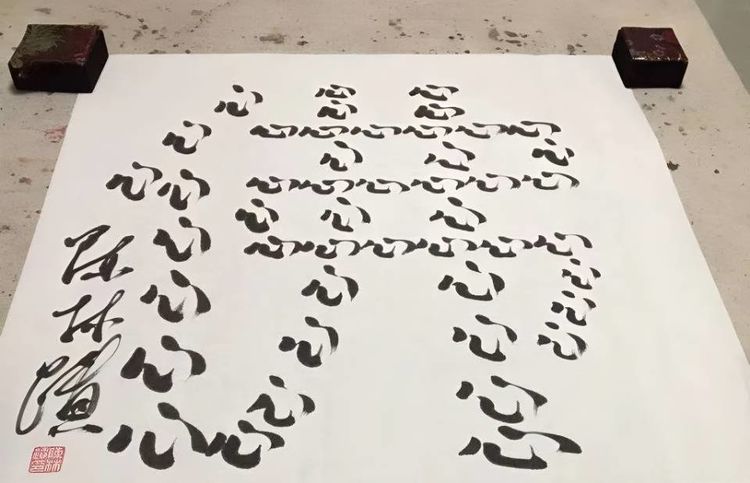 心 心 心
心 心
心 心 心 心 心 心 心
心 心 心
心 心 心 心 心 心 心 心
心 心 心
心 心 心 心 心 心 心
心 心 心 心
心 心
心 心 心
心 心 心
心 心 心
陈林